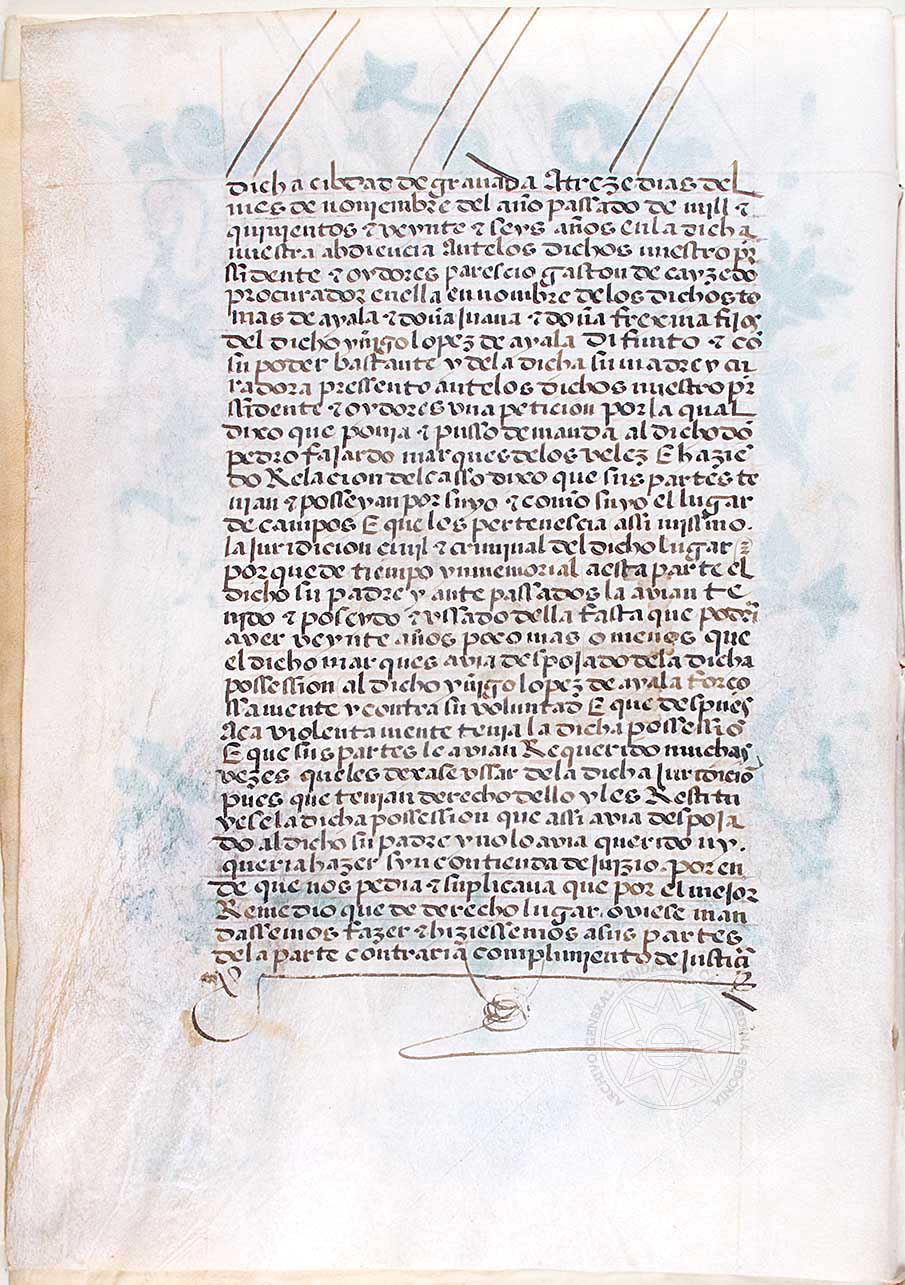 dicha cibdad de granada Atreze dias del
mes de noviembre del año passado de mill &
quinientos & veynte & seys años enla dicha
nuestra abdiencia Antelos dichos nuestro pre
ssidente & oydores parescio gaston de cayzedo
procurador enella en nombre de los dichos to
mas de ayala & doña juana & doña frexina fijos
del dicho yñigo lopez de ayala Difunto & cõ
su poder bastante y dela dicha su madre y cu
radora pressento antelos dichos nuestro pre
ssidente & oydores vna peticion por la qual
dixo que ponia & pusso demanda al dicho dõ
pedro fajardo marques delos velez E hazie
do Relacion del casso dixo que sus partes te
nian & posseyan por suyo & como suyo el lugar
de campos E que los pertenescia assi missmo.
la juridicion ceuil & criminal del dicho lugar
por que de tiempo ynmemorial aesta parte el
dicho su padre y ante passados la avian te
nido & poseydo & vssado della fasta que podriã
aver veynte años poco mas o menos que
el dicho marques avia despojado dela dicha
possession al dicho yñigo lopez de ayala forço
ssamente y contra su voluntad E que despues
Aca violentamente tenia la dicha possessiõ
E que sus partes le avian Requerido muchas
vezes que les dexase vssar dela dicha jurediciõ
pues que tenian derecho dello y les Restitu
yese la dicha possession que assi avia despoja
do al dicho su padre y nolo avia querido ny.
queria hazer syn contienda de juizio. Por en
de que nos pedia & suplicaua que por el mejor
Remedio que de derecho lugar oviese man
dassemos fazer & hiziessemos asus partes
dela parte contraria complimiento de justiçia
ARCHIVO GENERAL FUNDACIÓN CASA MEDINA SIDONIA